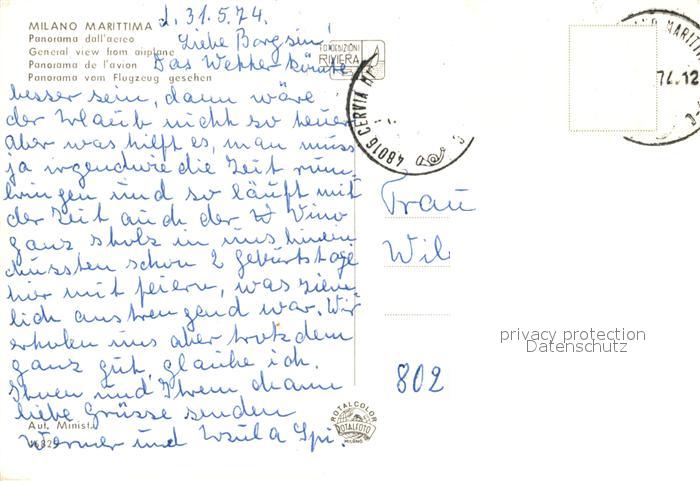 MILANO MARITTIMA
Panorama dall'aereo
General view from airplane
Panorama de l'avion
Panorama vom Flugzeug gesehen
d. 31.5.74.
Liebe Borgsin!
Das Wetter könnte
besser sein, dann wäre
der Urlaub nicht so teuer
aber was hilft es, man muss
ja irgendwie die Zeit rum-
bringen, und so läuft mit
der Zeit auch der Vino
ganz stolz in uns hinein
mussten schon 2 Geburtstage
hier mit feiern, was ziem-
lich anstrengend war. Wir
erholen uns aber trotzdem
ganz gut, glaube ich.
Ihnen und Ihrem Mann
liebe Grüsse senden
Werner und Ursula
Aut. Minist.
FOTOEDIZIONI
RIVIERA
48016 CERVIA
MARITTI
74.12
Frau
Wil
802
privacy protection
Datenschutz
ROTALCOLOR
ROTALFOTO
MILANO